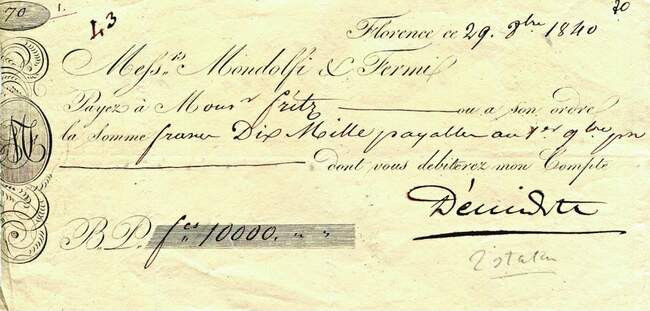 70 1. 43 70
Florence ce 29. 8bre 1840
Messrs Mondolfi & Fermi
Payez à Monsr fritz ou a son ordre
la Somme francs Dix Mille payables au 1er 9bre pn
dont vous debiterez mon Compte
B. P. fcs 10000. " "